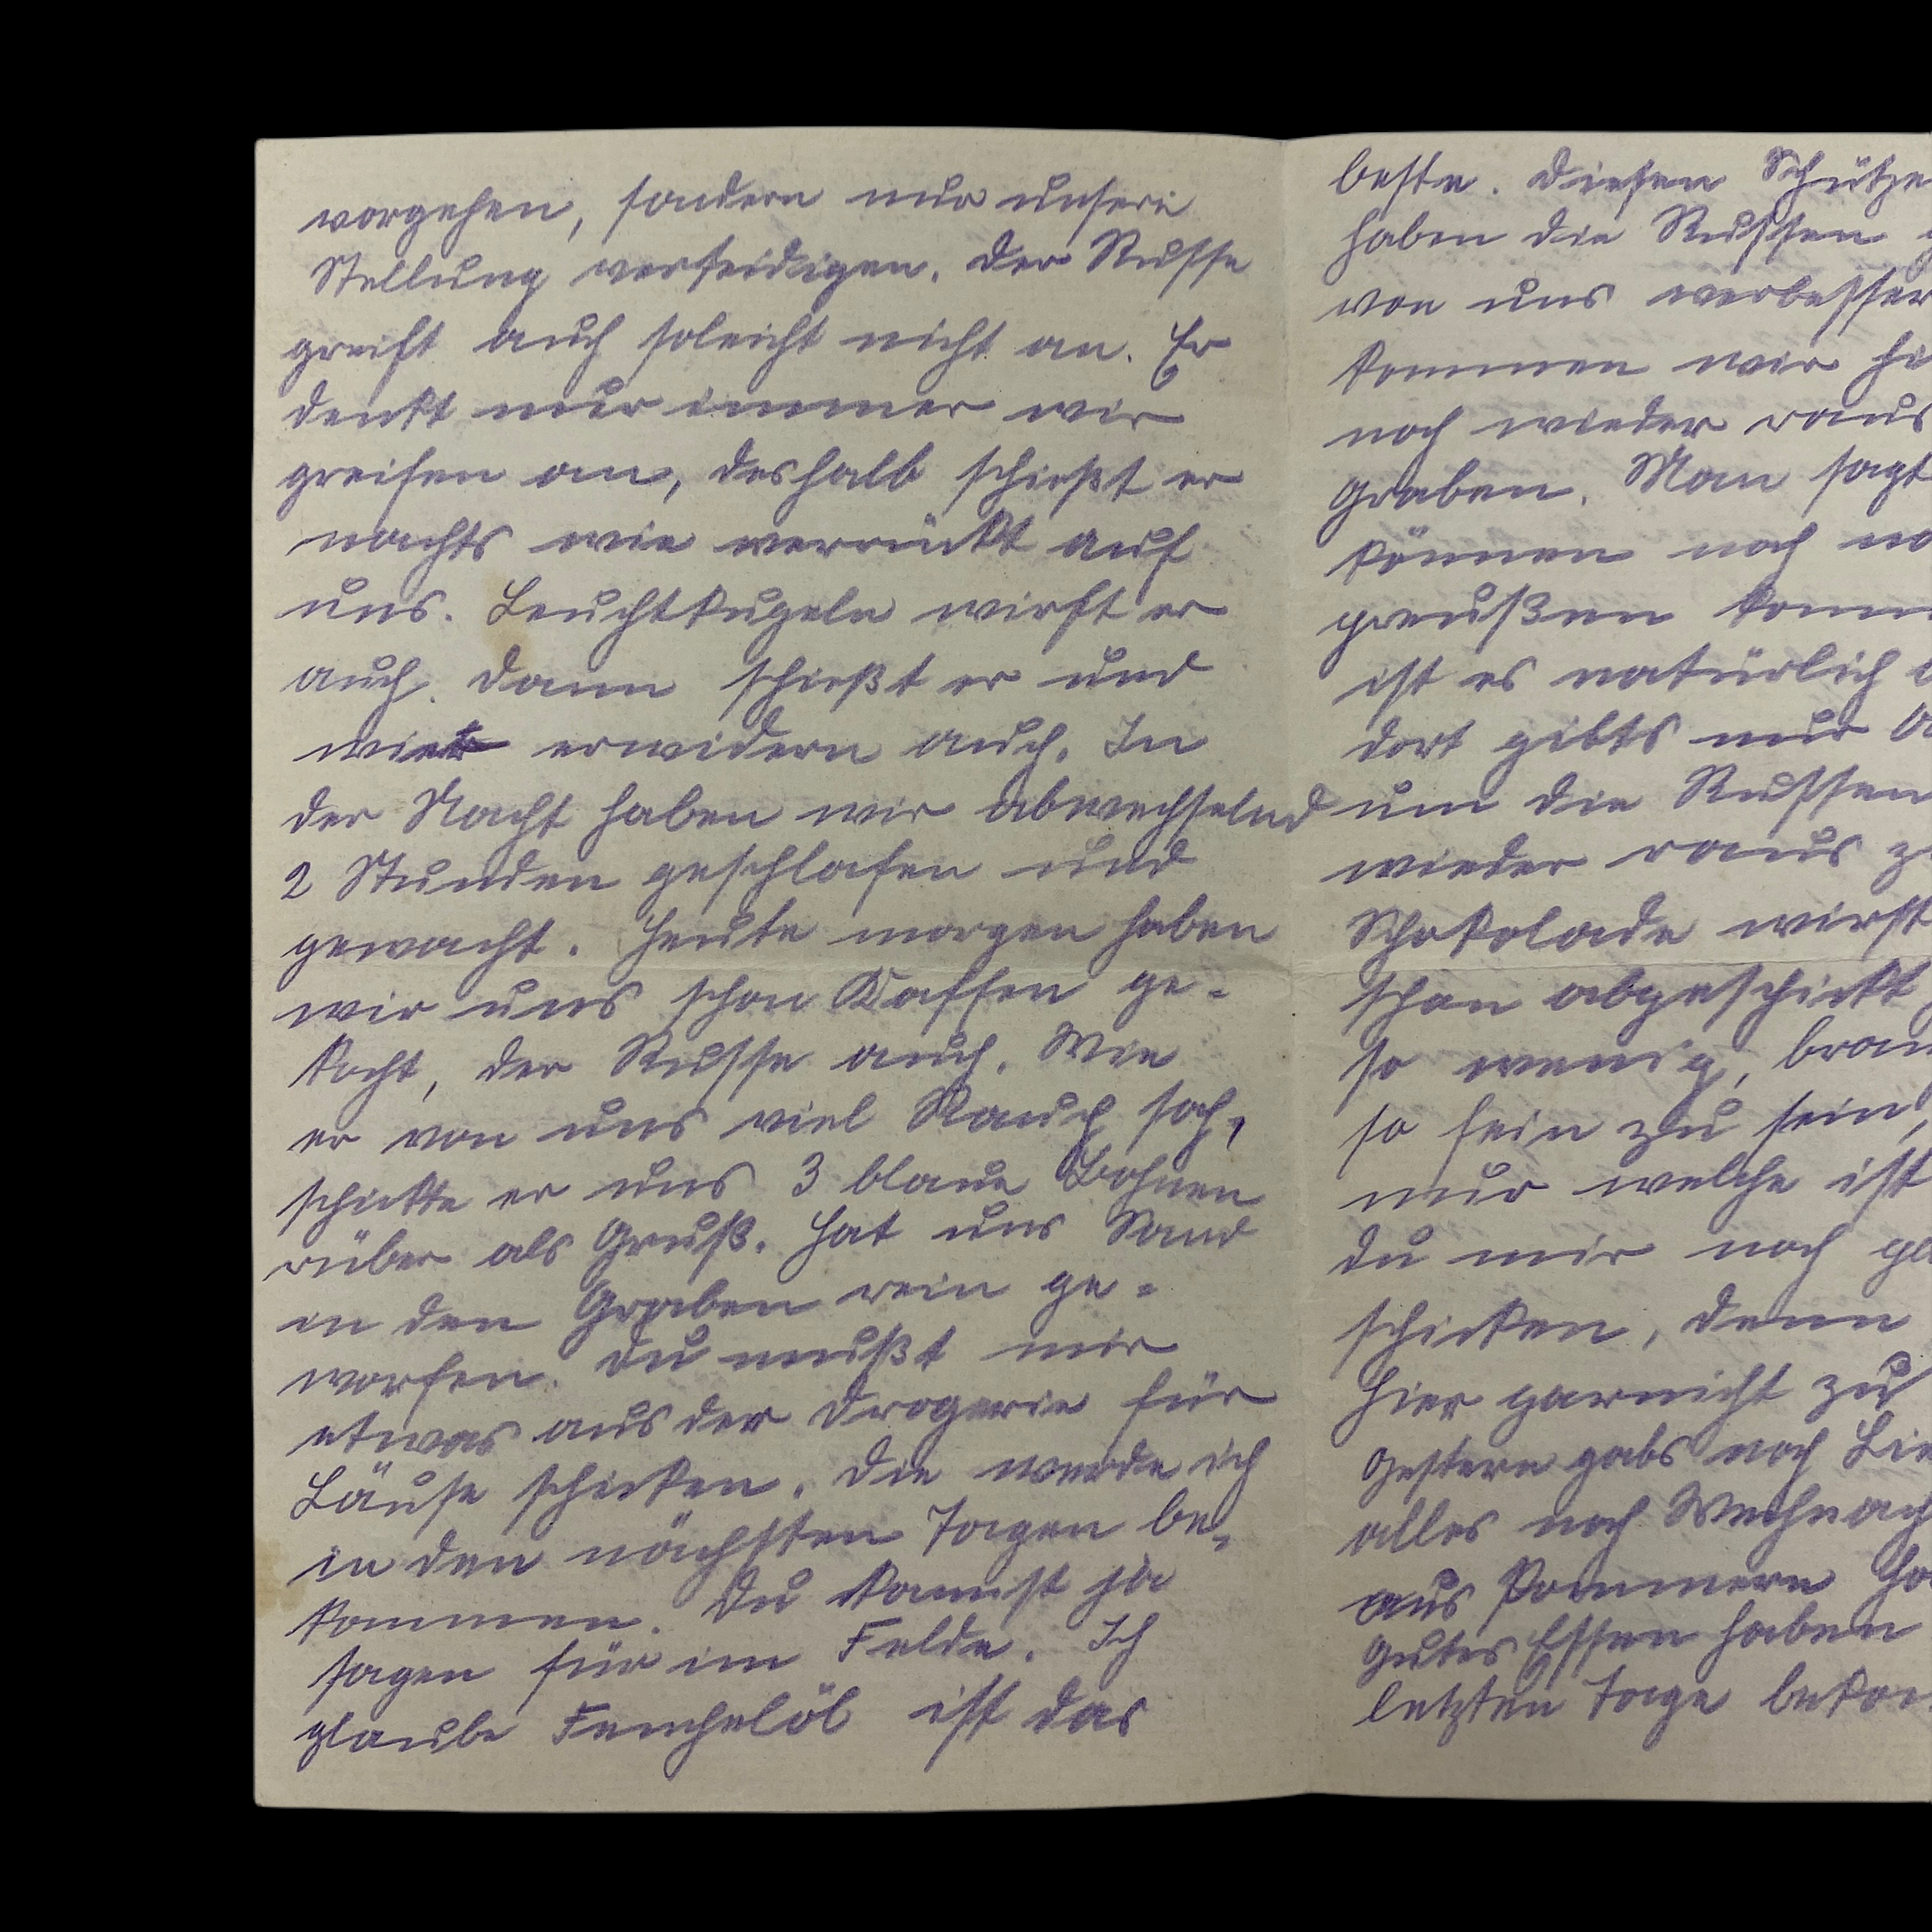 vorgehen, sondern nur unsere
Stellung verteidigen. Der Russe
greift auch soleicht nicht an. Er
denkt nur immer wir
greifen an, deshalb schießt er
nachts wie verrückt auf
uns. Leuchtkugeln wirft er
auch. Dann schießt er und
wir erwidern auch. In
der Nacht haben wir abwechselnd
2 Stunden geschlafen und
gewacht. Heute morgen haben
wir uns schon Kaffee ge-
kocht, der Russe auch. Wie
er von uns viel Rauch sah,
schickte er uns 3 blaue Bohnen
rüber als Gruß. Hat uns Sand
in den Graben rein ge-
worfen. Du mußt mir
etwas aus der Drogerie für
Läuse schicken. Die werde ich
in den nächsten Tagen be-
kommen. Du kannst ja
sagen für im Felde. Ich
glaube Fenchelöl ist das
beste. Diesen Schütze
haben die Russen
von uns verbesser
kommen wir hi
noch wieder raus
Graben. Man sagt
können noch na
preußen komm
ist es natürlich
dort gibts nur
um die Russen
wieder raus z
Schokolade wirst
schon abgeschickt
so wenig, brau
so fein zu sein,
nur welche ist
du mir noch
schicken, denn
hier garnicht zu
Gestern gabs noch Lie
alles noch Weihnach
aus Pommern ha
Gutes Essen haben
letzten Tage bekom